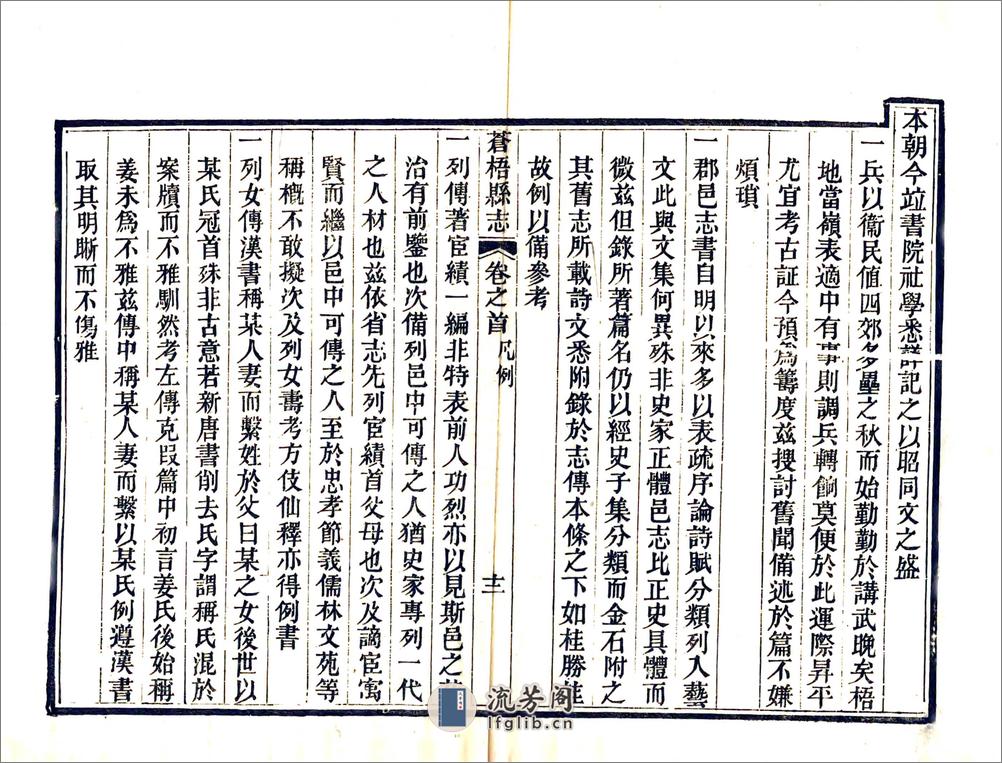 本朝今竝書院社學悉詳記之以昭同文之盛
一兵以衞民值四郊多壘之秋而始勤勤於講武晚矣梧
地當嶺表適中有事則調兵轉餉莫便於此運際昇平
尤宜考古証今預爲籌度茲搜討舊聞備述於篇不嫌
煩瑣
一郡邑志書自明以來多以表疏序論詩賦分類列入藝
文此與文集何異殊非史家正體邑志比正史具體而
微茲但錄所著篇名仍以經史子集分類而金石附之
其舊志所載詩文悉附錄於志傳本條之下如桂勝桂
故例以備參考
蒼梧縣志 卷之首 凡例 十二
一列傳著宦績一編非特表前人功烈亦以見斯邑之
治有前鑒也次備列邑中可傳之人猶史家專列一代
之人材也茲依省志先列宦績首父母也次及謫宦寓
賢而繼以邑中可傳之人至於忠孝節義儒林文苑等
稱槪不敢擬次及列女壽考方伎仙釋亦得例書
一列女傳漢書稱某人妻而繫姓於父曰某之女後世以
某氏冠首殊非古意若新唐書削去氏字謂稱氏混於
案牘而不雅馴然考左傳克段篇中初言姜氏後始稱
姜未爲不雅茲傳中稱某人妻而繫以某氏例遵漢書
取其明晰而不傷雅
流芳阁
lfglib.cn